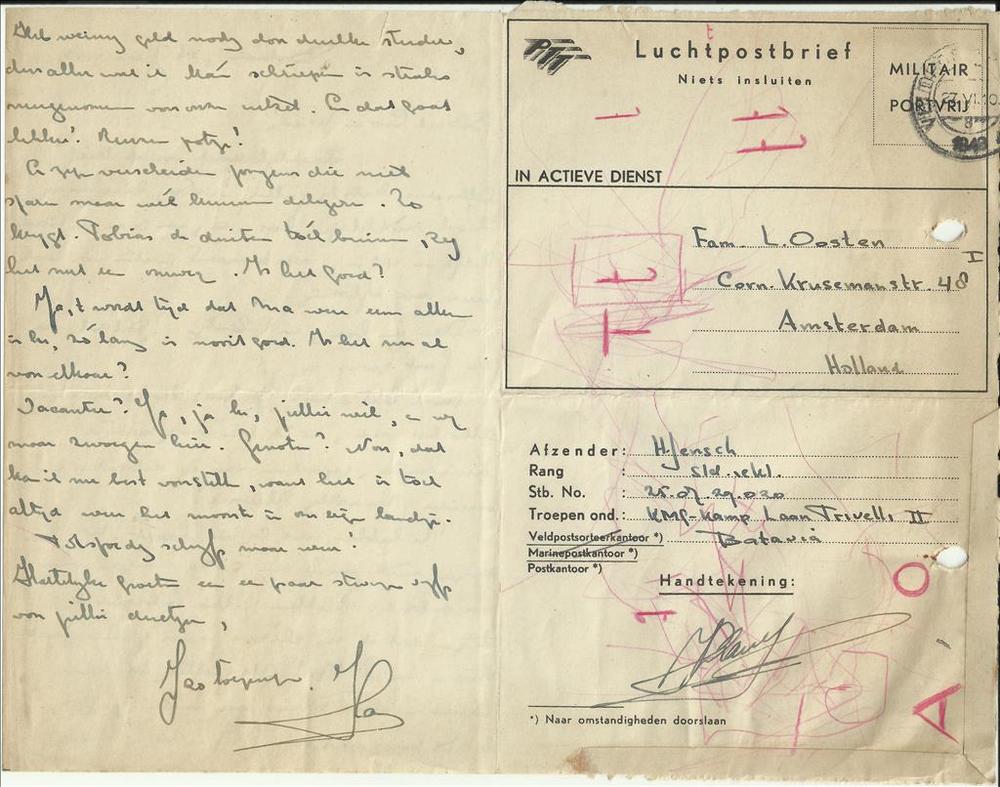 Heb weinig geld nodig don
dus alles wat ik kán schrapen is straks
meegenomen voor onze uitzet. En dat gaat
lekker!
En zijn verscheiden jongens die niet
sparen maar wél kunnen delegeren. Zo
krijgt Tobias de duiten tóch binnen, zij
het met een omweg. Is het goed?
Ja, 't wordt tijd dat Ma weer eens alleen
is hè, zó lang is nooit goed. Is het nu al
voor elkaar?
Vacantie? Ja, ja hè, jullie wel, en wij
maar zwoegen hier. Genoten? Nou, dat
kan ik me best voorstellen, want het is toch
altijd weer het mooiste in ons eigen landje.
Voorspoedig schrijf maar weer!
Hartelijke groeten en een paar stevige
van jullie
Jao
PTT
Luchtpostbrief
Niets insluiten
MILITAIR
PORTVRIJ
27.VI.
8
1949
IN ACTIEVE DIENST
Fam. L. Oosten
Corn. Krusemanstr. 48 I
Amsterdam
Holland
Afzender: H. Jensch
Rang : sld. ekl.
Stb. No. : 25.07.29.020
Troepen ond.: KMG-Kamp Laan Trivelli II
Veldpostsorteerkantoor *) Batavia
Marinepostkantoor *)
Postkantoor *)
Handtekening:
*) Naar omstandigheden doorslaan